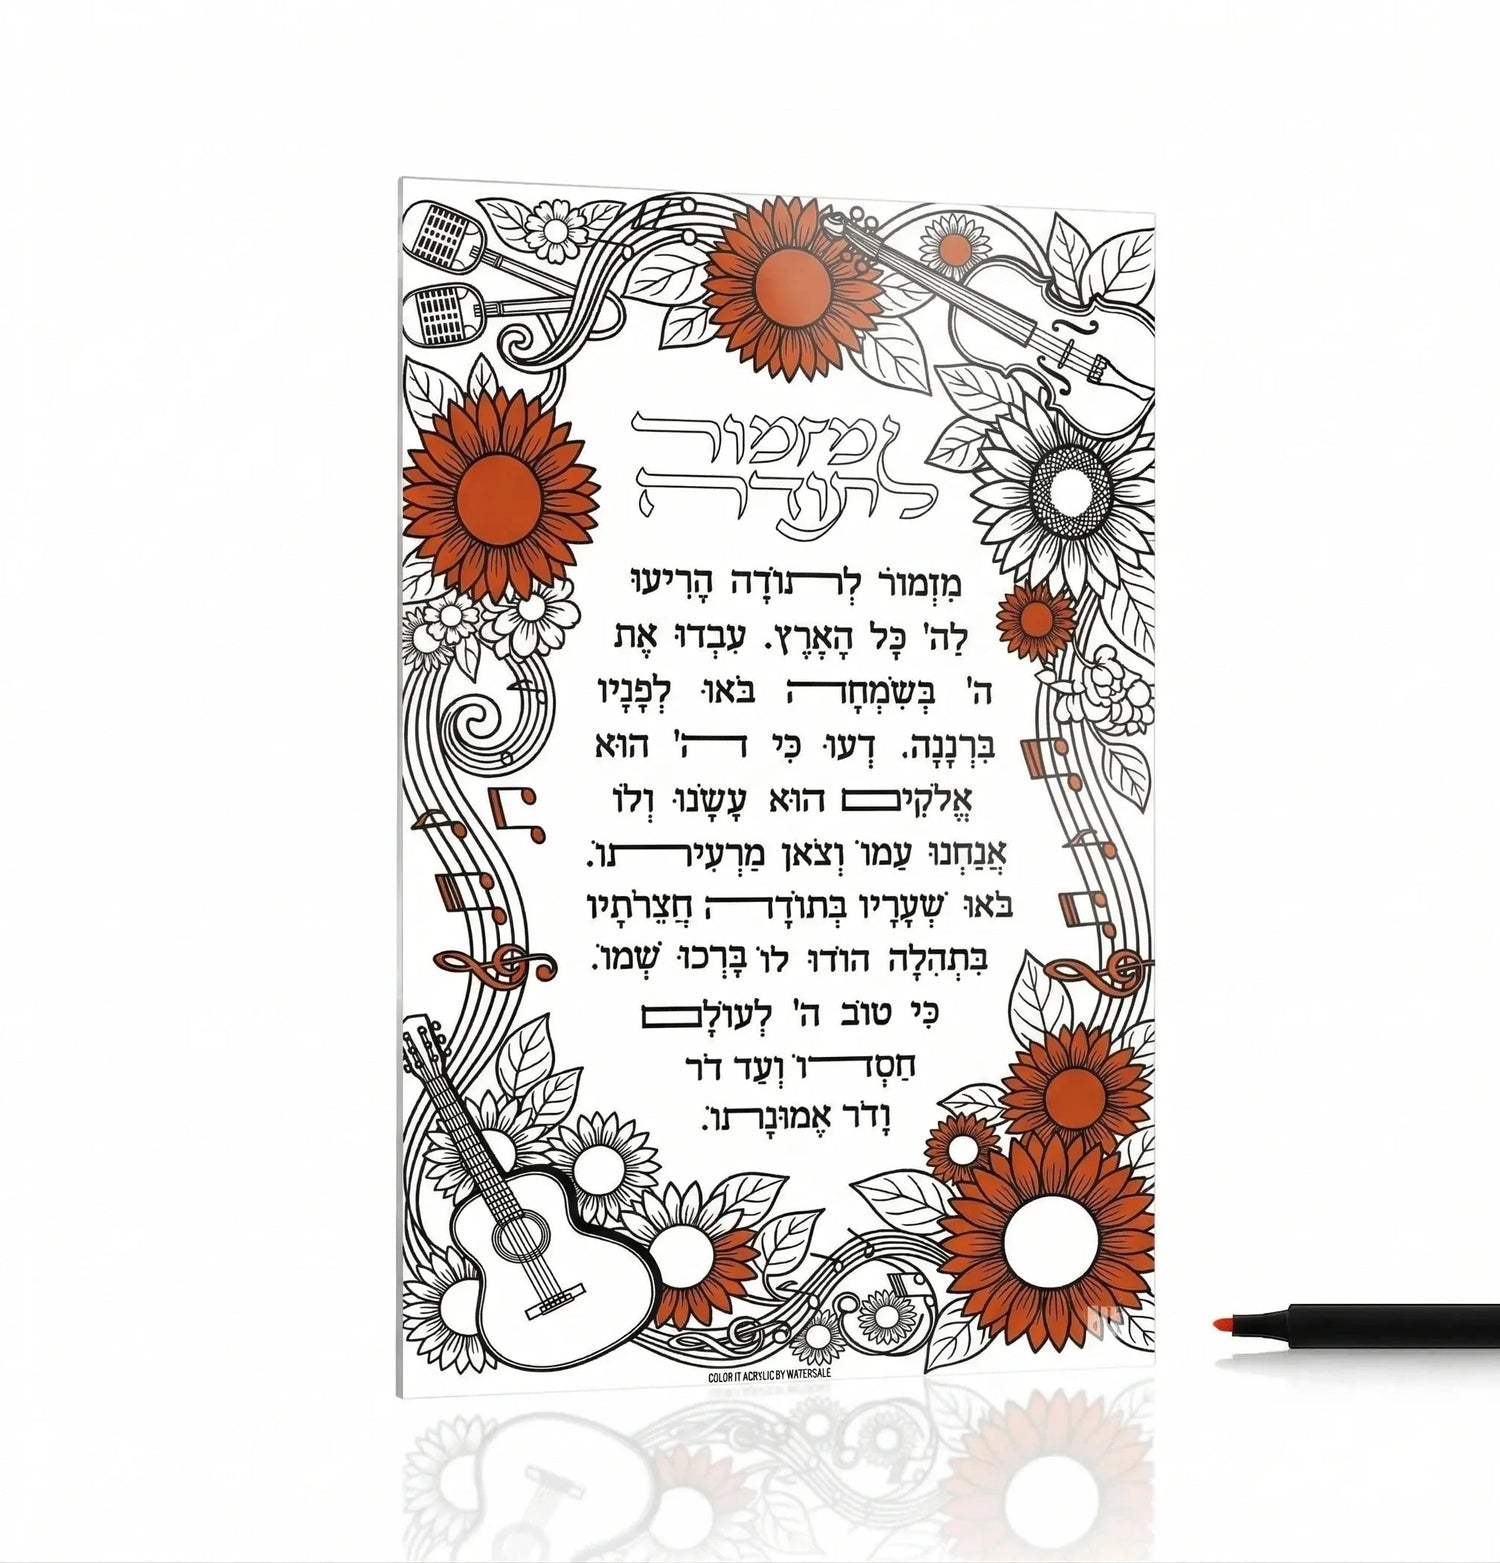 מזמור
לתודה
מִזְמוֹר לְתוֹדָה הָרִיעוּ
לַה' כָּל הָאָרֶץ. עִבְדוּ אֶת
ה' בְּשִׂמְחָה בֹּאוּ לְפָנָיו
בִּרְנָנָה. דְעוּ כִּי ה' הוּא
אֱלֹקִים הוּא עָשָׂנוּ וְלוֹ
אֲנַחְנוּ עַמוֹ וְצֹאן מַרְעִיתוֹ.
בֹּאוּ שְׁעָרָיו בְּתוֹדָה חֲצֵרֹתָיו
בִּתְהִלָה הוֹדוּ לוֹ בָּרְכוּ שְׁמוֹ.
כִּי טוֹב ה' לְעוֹלָם
חַסְדוֹ וְעַד דֹר
וָדֹר אֱמוּנָתוֹ.
COLOR IT ACRYLIC BY WATERSALE